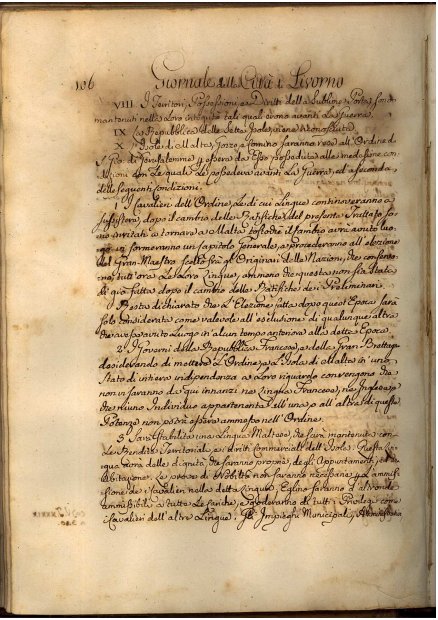 106 Giornale della Città di Livorno
VIII. I Territori, Possessioni, e Diritti della Sublime Porta, sono
mantenuti nella loro integrità tali quali erano avanti la Guerra.
IX. La Repubblica delle Sette Isole, viene riconosciuta.
X. L'Isole di Malta, Gozzo, e Comino saranno rese all'Ordine di
S. Gio: di Gerusalemme p essere da Esso possedute alle medesime con-
dizioni con le quali Le possedeva avanti La Guerra, ed a seconda
delle seguenti condizioni.
1. I Cavalieri dell'Ordine, Le di cui Lingue continoveranno a
sussistere, dopo il cambio delle Ratifiche del presente Trattato so-
no invitati a tornare a Malta tostochè il cambio avrà avuto luo-
go, vi formeranno un Capitolo Generale, e procederanno all'elezione
del Gran Maestro scelto fra gli Originari delle Nazioni, che conserva-
no tutt'ora Le Loro Lingue, ammeno che questa non sia stata
di già fatta dopo il cambio delle Ratifiche dei Preliminari.
Resta dichiarato che L'Elezione fatta dopo quest'Epoca sarà
sola considerata come valevole all'esclusione di qualunque altra
che avesse avuto Luogo in alcun tempo anteriore alla detta Epoca.
2. I Governi della Repubblica Francese, e della Gran Brettagna
desiderando di mettere L'Ordine, e L'Isola di Malta in uno
Stato di intiera indipendenza a Loro riguardo convengono che
non vi saranno da qui innanzi nè Lingua Francese, nè Inglese, e
che niuno Individuo appartenente all'una, o all'altra di queste
Potenze non potrà essere ammesso nell'Ordine.
3. Sarà stabilita una Lingua Maltese, che sarà mantenuta con
Le Rendite Territoriali, e i diritti commerciali dell'Isola. Questa Lin-
gua avrà delle dignità che saranno proprie, degli Appuntamenti, e
Abitazione. Le prove di Nobiltà non saranno necessarie p L'ammis-
sione dei Cavalieri nella detta Lingua. Eglino saranno d'altronde
ammissibili a tutte Le cariche, e goderanno di tutti i Privilegi come
i Cavalieri dell'altre Lingue. Gli Impieghi Municipali,